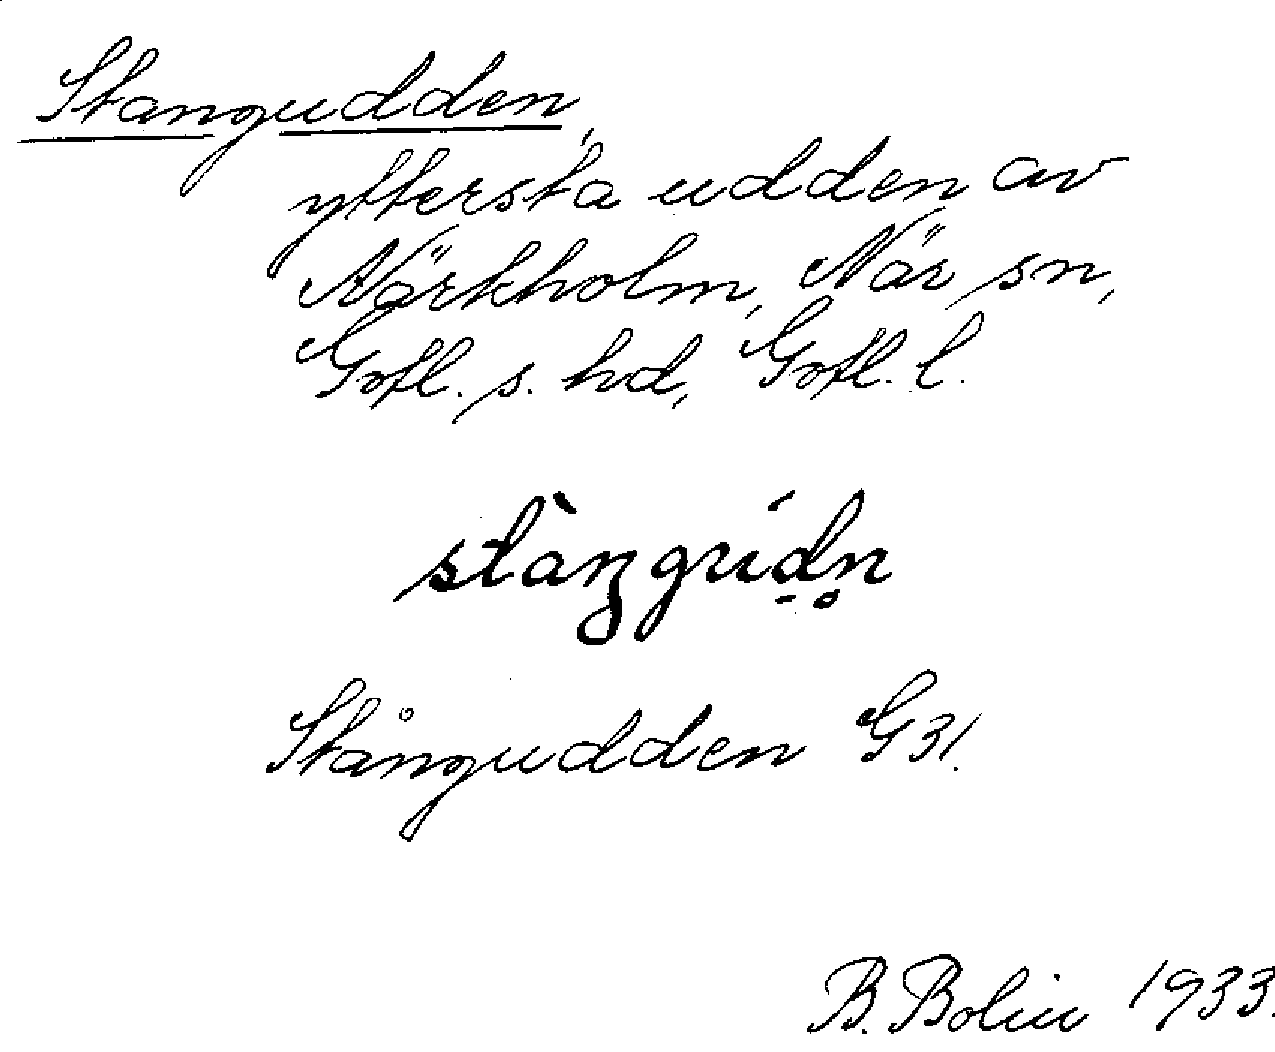 Stangudden,
yttersta udden av
Närkholm, När sn,
Gotl. s. hd, Gotl. l.
Stångudden G31.
B. Bolin 1933.